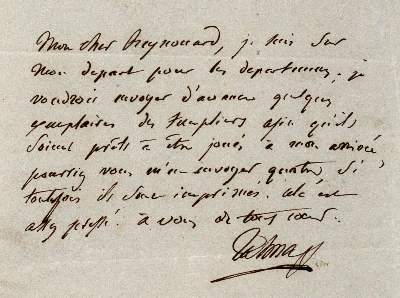 Mon cher Raynouard, je suis sur
mon depart pour les departemens. je
voudrois envoyer d'avance quelques
exemplaires des templiers afin qu'ils
soient prêts a être joués a mon arrivée,
pourriez vous m'en envoyer quatre si
toutefois ils sont imprimés. cela est
assez pressé. a vous de tout coeur.
Talma